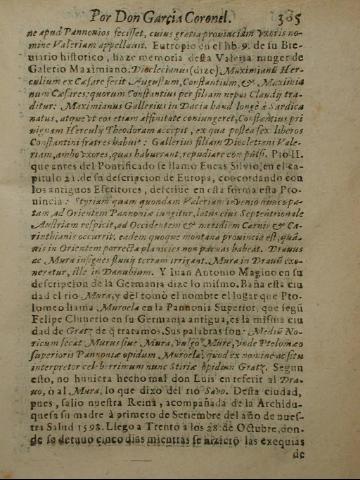 Por Don Garcia Coronel. 305
ne apud Pannonios fecisset, cuius gratia provinciam Vxoris no-
mine Valeriam appellavit. Eutropio en el lib. 9. de su Bre-
uiario historico, haze memoria desta Valeria muger de
Galerio Maximiano. Diocletianus (dize) Maximianũ Her-
culium ex Cæsare fecit Augustum, Constantium, & Maximia
num Cæsares; quorum Constantius per filiam nepos Claudij tra-
ditur: Maximianus Gallerius in Dacia haud longè à Sardica
natus, atque vt eos etiam affinitate coniungeret, Constantius pri
uignam Herculij Theodoram accepit, ex qua postea sex liberos
Constantini fratres habuit: Gallerius filiam Diocletiani Vale-
riam, ambo vxores, quas habuerant, repudiare compulsi. Pio II.
que antes del Pontificado se llamò Eneas Siluio, en el ca-
pitulo 21. de su descripcion de Europa, concordando con
los antiguos Escritores, descriue en esta forma esta Pro-
uincia: Styriam quam quondam Valeriam
tam, ad Orientem Pannoniæ iungitur, latus eius Septentrionale
Austriam respicit, ad Occidentem & meridiem Carnis & Ca-
rinthianis occurrit, eadem quoque montana prouincia est, quã-
uis in Orientem porrecta planicies non paruas habeat. Drauus
ac Mura insignes fluuij terram irrigant. Mura in Drauũ exo-
neratur, ille in Danubium. Y Iuan Antonio Magino en su
descripcion de la Germania dize lo mismo. Baña esta ciu
dad el rio Mura, y del tomò el nombre el lugar que Pto-
lomeo llama Muroela en la Pannonia Superior, que segũ
Felipe Cluuerio en su Germania antigua, es la misma ciu
dad de Gratz de q̃ tratamos. Sus palabras son: Mediũ No-
ricum secat Murus siue Mura, vulgò Mure, vnde Ptolemæo
superioris Pannoniæ opidum Muroela, quod ex nomine ac situ
interpretor celeberrimum nunc Stiriæ opidum Gratz. Segun
esto, no huuiera hecho mal don Luis en referir al Dra-
uo, ò al Mura, lo que dixo del rio Sauo. Desta ciudad,
pues, salio nuestra Reina, acompañada de la Archidu-
quesa su madre à primero de Setiembre del año de nues-
tra Salud 1598. Llego a Trento à los 28. de Octubre, don-
de se detuuo cinco dias mientras se hizierō las exequias
de